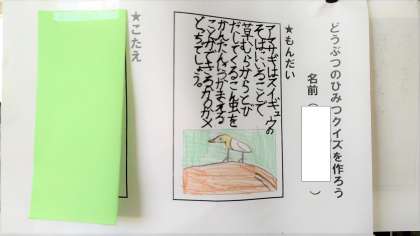 どうぶつのひみつクイズを作ろう
名前（　　）
★もんだい
アマサギはスイギュウの
そばにいることで
草むらからとび
だしてくるこん虫を
かんたんにつかまえる
ことができるか〇か×
どちらでしょう。
★こたえ